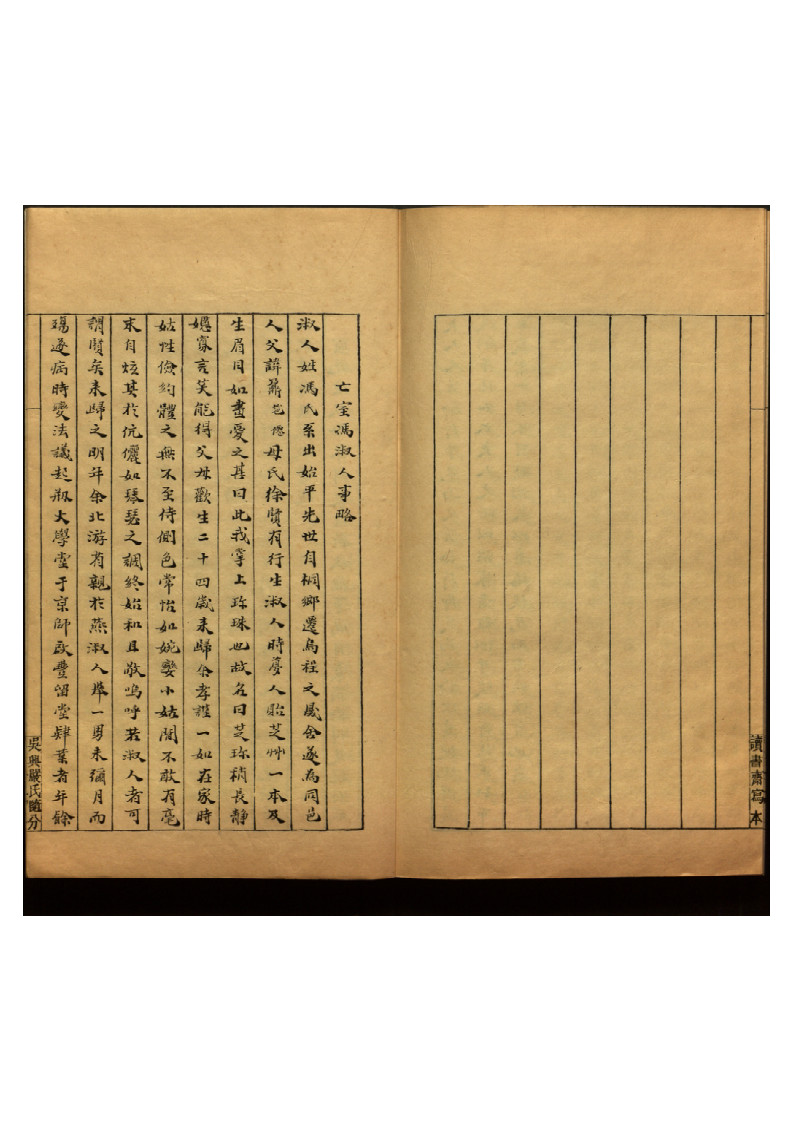 讀書齋寫本
亡室馮淑人事略
淑人姓馮氏系出始平先世自桐鄉遷烏程之晟舍遂為同邑
人父諱 母氏徐賢有行生淑人時夢人貽芝艸一本及
生眉目如畫愛之甚曰此我掌上珍珠也故名曰芝珍稍長靜
嬺寡言笑能得父母歡生二十四歲來歸余孝謹一如在家時
姑性儉約體之無不至侍側色常怡如婉孌小姑閒不敢有毫
末自炫其於伉儷如琴瑟之調終始和且敬嗚呼若淑人者可
謂賢矣來歸之明年余北游省親於燕淑人舉一男未彌月而
殤遂病時變法議起剏大學堂于京師 留堂肄業者年餘
吳興嚴氏隨分